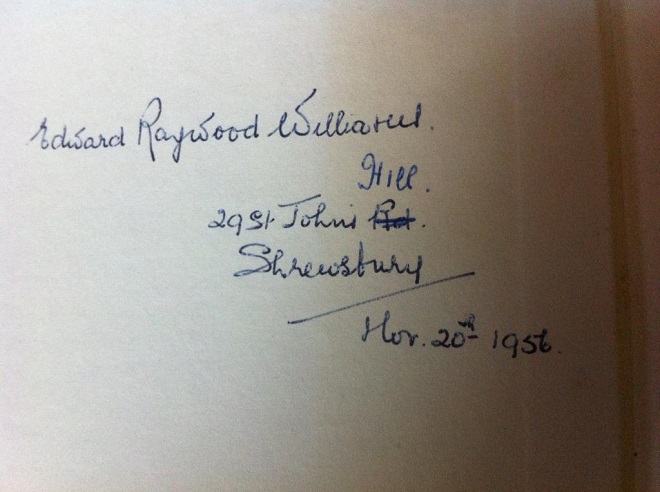 Edward Raywood Williams.
Hill.
29 St Johns Rd.
Shrewsbury
Nov. 20th 1956.